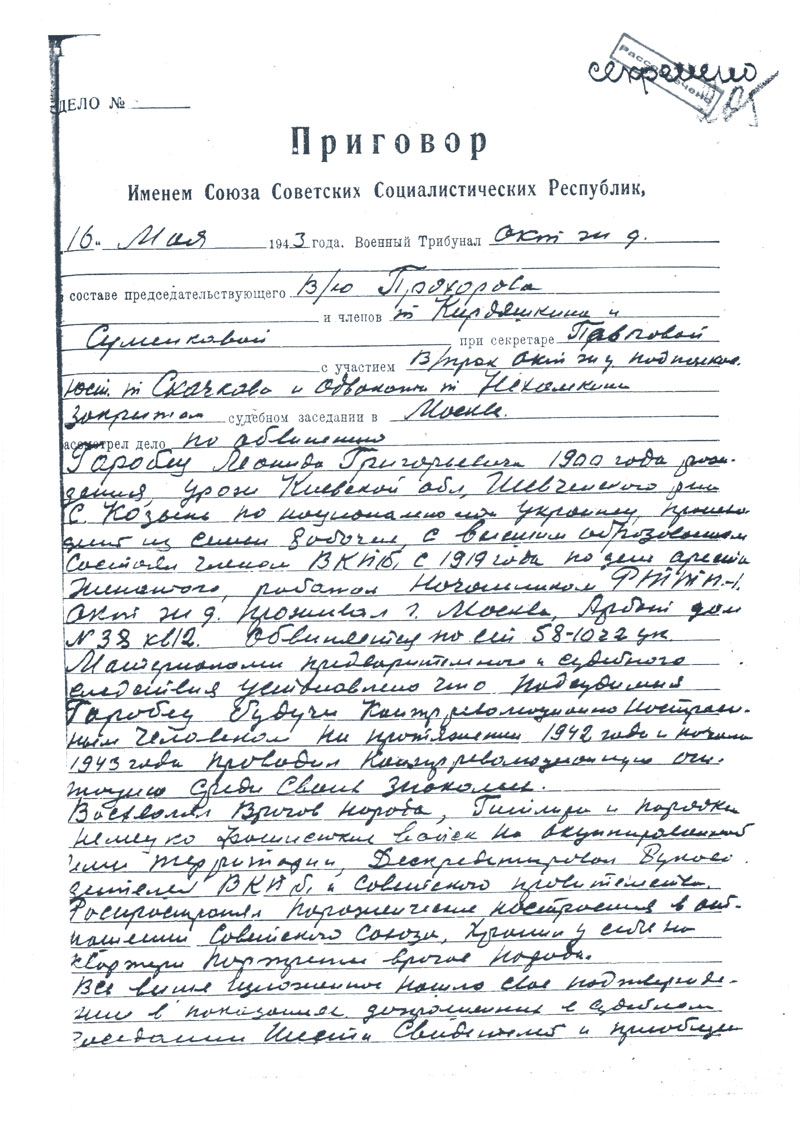 секретно
Рассекречено
ДЕЛО №
Приговор
Именем Союза Советских Социалистических Республик,
16 " Мая 1943 года. Военный Трибунал Окт ж д.
в составе председательствующего В/ю Прохорова
и членов т Кирдяшкина и
Суменковой при секретаре Павловой
с участием В/прок Окт ж д подполков.
юст. т Скачкова и адвоката т Нехамкина
закрытом судебном заседании в Москве.
рассмотрел дело по обвинению
Гаробец Леонида Григорьевича 1900 года рож-
дения, урож Киевской обл, Шевченского р-на
с. Козынь по национальности украинец, происхо
дит из семьи рабочих с высшим образованием
состоял членом ВКПб, с 1919 года по день ареста
женатого, работал начальником
Окт ж д. проживал г. Москва, Арбат дом
N 38 кв 12. Обвиняется по ст 58-10 ч 2 ук.
Материалами предварительного и судебного
следствия установлено что подсудимый
Гаробец будучи контрреволюционно настроен-
ным человеком на протяжении 1942 года и начала
1943 года проводил контрреволюционную аги-
тацию среди своих знакомых.
Восхвалял врагов народа, Гитлера и порядки
немецко фашистских войск на окупированной
ими территории, Дескредитировал руково
дителей ВКПб, и советского правительства.
Распространял пораженческие настроения в от-
ношении Советского Союза, Хранил у себя на
квартире портреты врагов народа.
Все выше изложенное нашло свое подтвержде-
ние в показаниях допрошенных в судебном
заседании шести свидетелей и приобщен